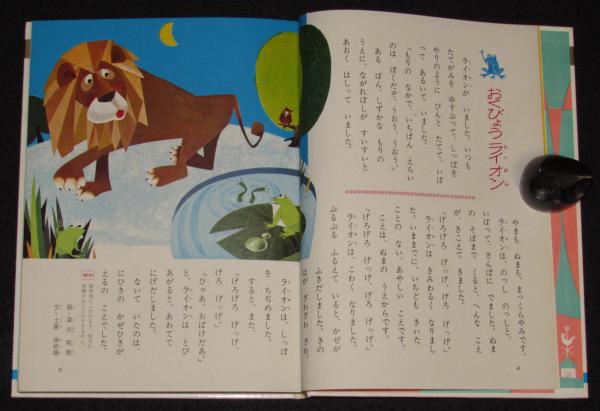 おくびょうライオン
らいおん
ライオンが いました。いつも
たてがみを ゆすぶって、しっぽを
やりのように ぴんと たてて、いば
って あるいて いました。
「もりの なかで、いちばん えらい
のは ぼくだぞ。うおう、うおう。」
ある ばん、しずかな もりの
うえに、ながれぼしが すいすいと
あおく はしって いました。
やまも ぬまも、まっくらやみです。
ライオンは、のっし のっしと、
いばって、さんぽに でました。ぬま
の そばまで くると、へんな こえ
が、きこえて きました。
「げろげろ げっげ、げろ げっげ。」
ライオンは きみわるく なりまし
た。いままでに、いちども きいた
ことの ない、あやしい こえです。
こえは、ぬまの うえからです。
「げろげろ げっげ、げろ げっげ。」
ライオンは、こわく なりました。
ぶるぶる ふるえて いると、かぜが
ふきだしました。きの
はが ざわざわ ざわ。
4
ライオンは、しっぽ
を ちぢめました。
すると、また、
「げろげろ げっげ、
げろ げっげ。」
「ひゃあ、おばけだあ。」
と、ライオンは とび
あがると、あわてて
にげだしました。
ないて いたのは、
にひきの かぜひきが
えるの こえでした。
絵・深沢 邦朗
文・土家 由岐雄
5